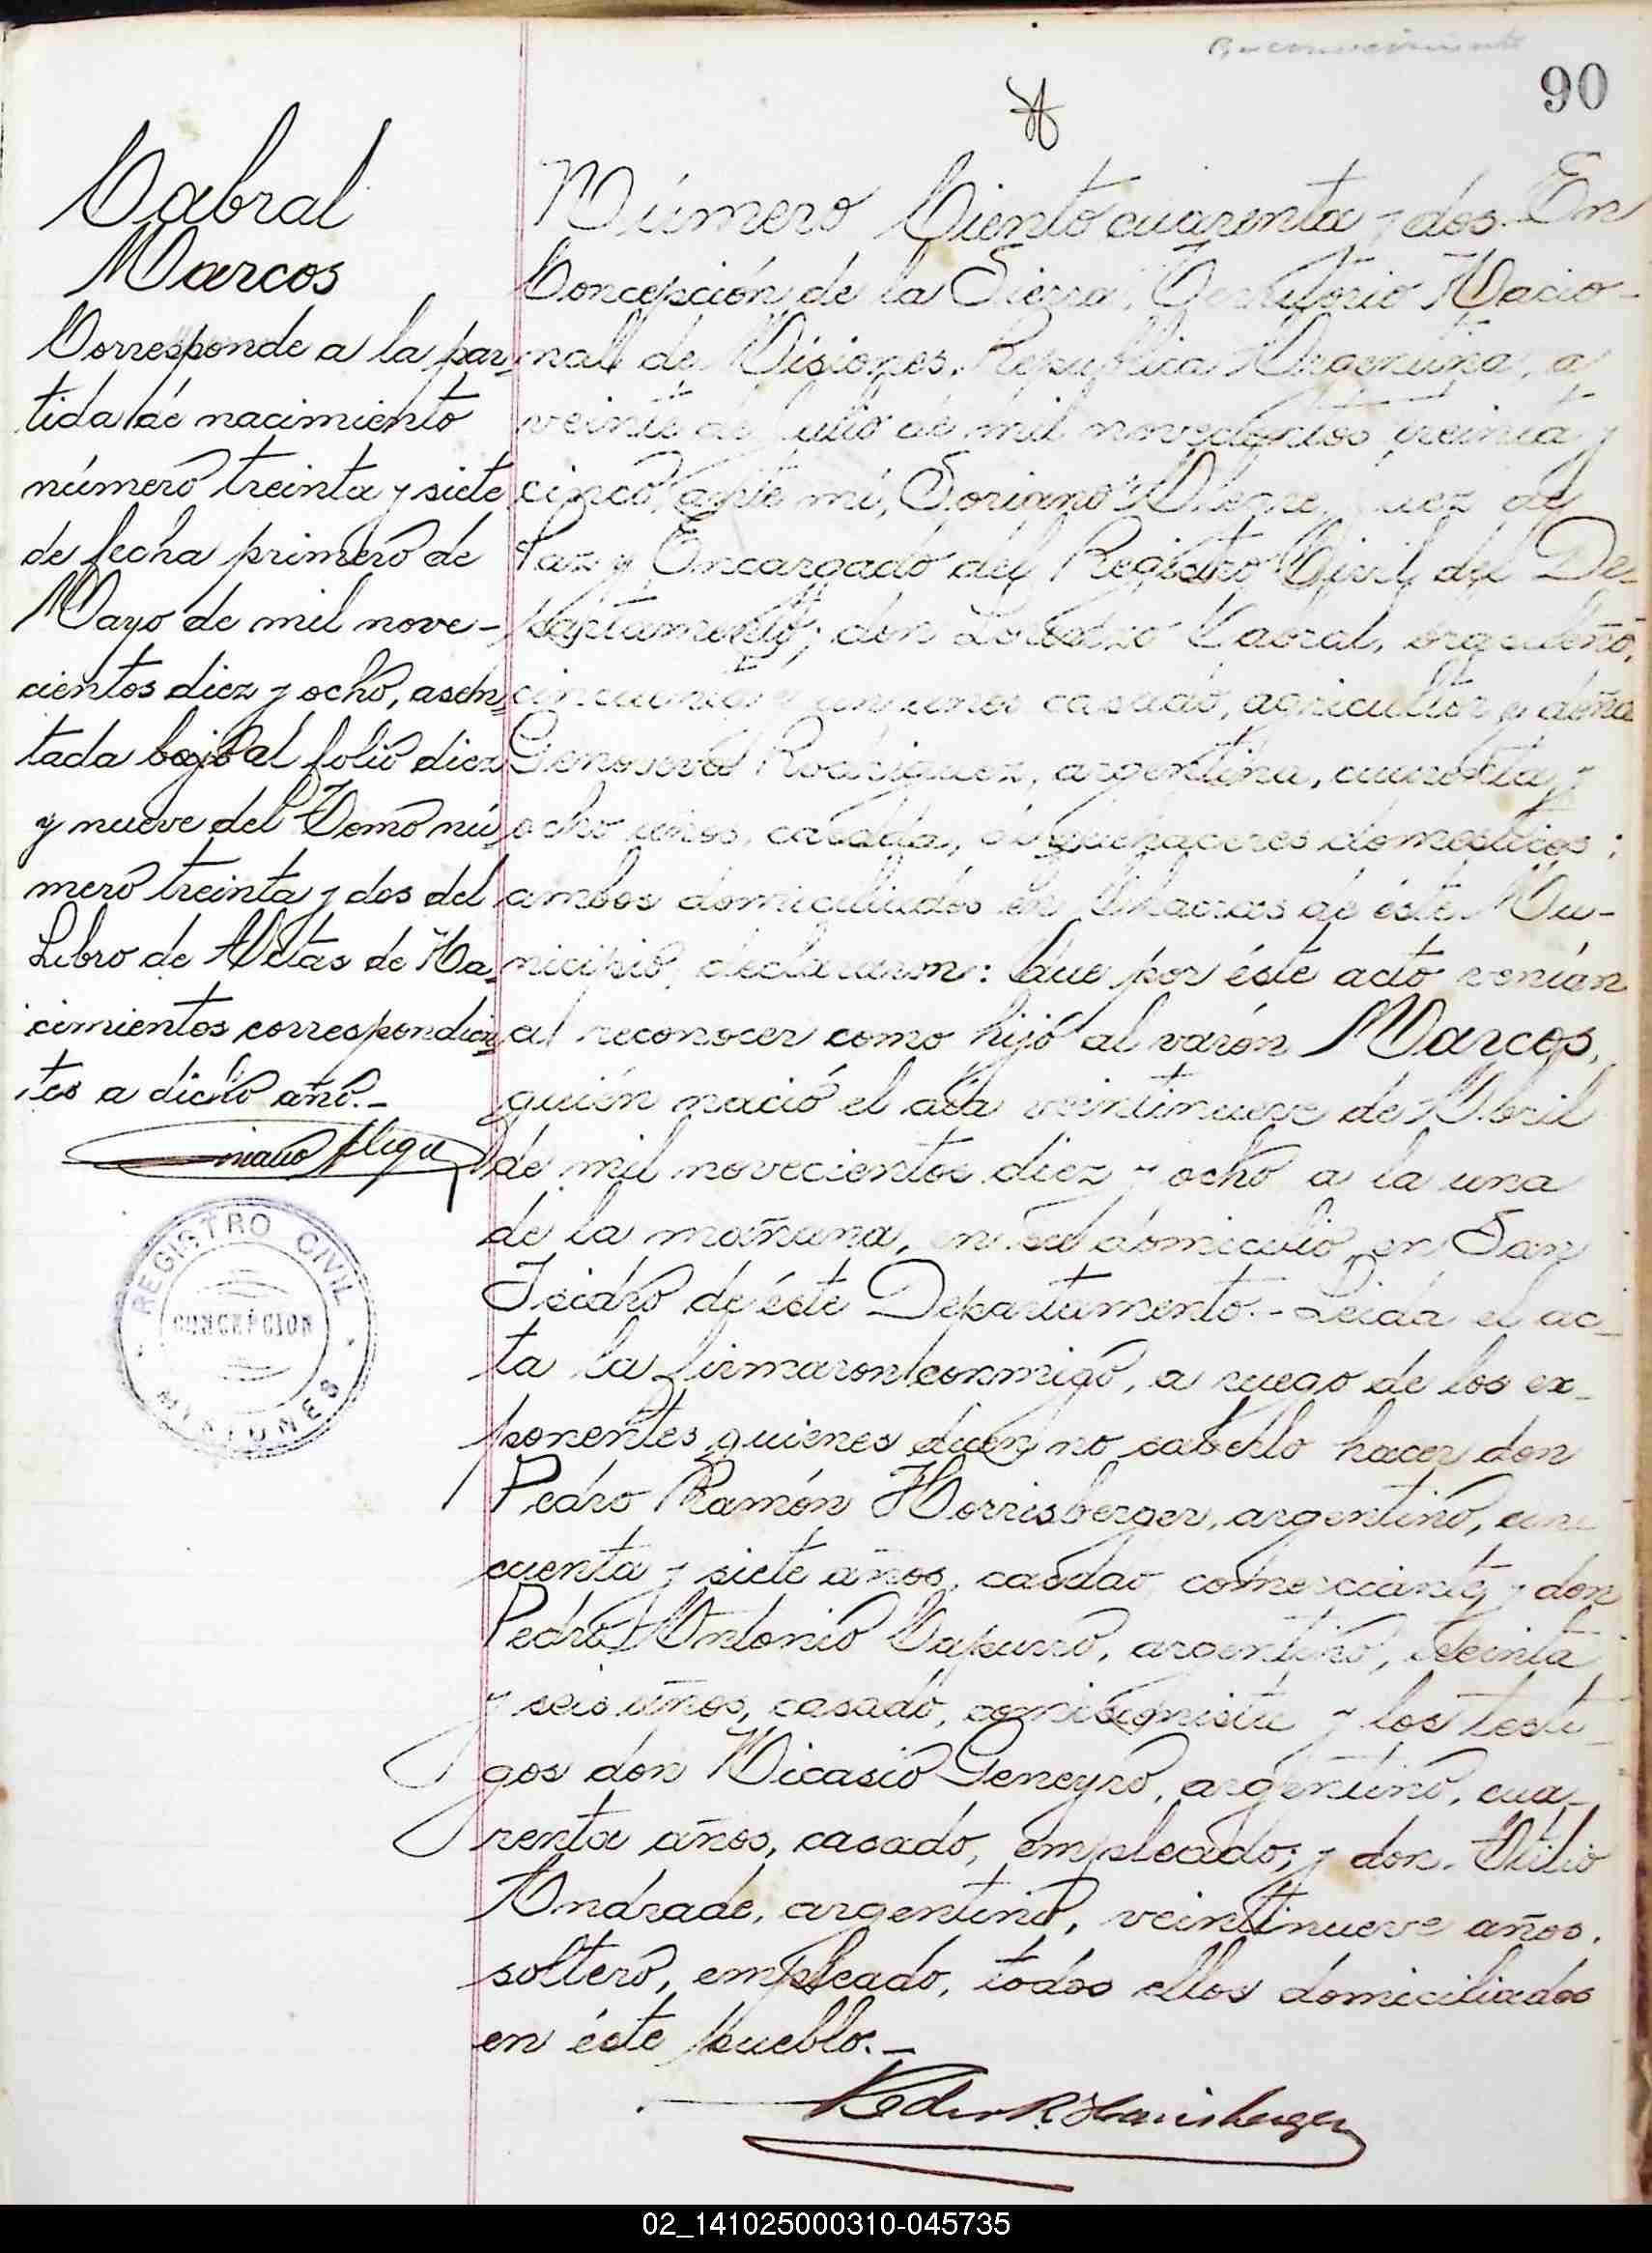 Reconocimiento
90
Cabral
Marcos
Corresponde a la par-
tida de nacimiento
número treinta y siete
de fecha primero de
Mayo de mil nove-
cientos diez y ocho, asen-
tada bajo al folio diez
y nueve del Tomo nú-
mero treinta y dos del
Libro de Actas de Na-
cimientos correspondien-
tes a dicho año.-
REGISTRO CIVIL
CONCEPCION
MISIONES
Número Ciento cuarenta y dos. En
Concepción de la Sierra, Territorio Nacio-
nal de Misiones, República Argentina, a
veinte de Julio de mil novecientos treinta y
cinco, ante mí, Soriano Alegre, Juez de
Paz y Encargado del Registro Civil del De-
partamento; don Lorenzo Cabral, brasileño,
cincuenta y un años casado, agricultor y doña
Genoveva Rodriguez, argentina, cuarenta y
ocho años, casada, de quehaceres domesticos;
ambos domiciliados en Chacras de éste Mu-
nicipio, declararon: Que por éste acto venían
a reconocer como hijo al varón Marcos,
quién nació el día veintinueve de Abril
de mil novecientos diez y ocho a la una
de la mañana, en su domicilio en San
Isidro de éste Departamento.- Leida el ac-
ta la firmaron conmigo, a ruego de los ex-
ponentes quienes dicen no saberlo hacer don
Pedro Ramón Horrisberger, argentino, cin-
cuenta y siete años, casado comerciante y don
Pedro Antonio Capurro, argentino, treinta
y seis años, casado, comisionista y los testi-
gos don Nicasio Geneyro, argentino, cua-
renta años, casado, empleado; y don Atilio
Andrade, argentino, veintinueve años,
soltero, empleado, todos ellos domiciliados
en éste pueblo.-
Pedro R. Harrisberger
02_141025000310-045735